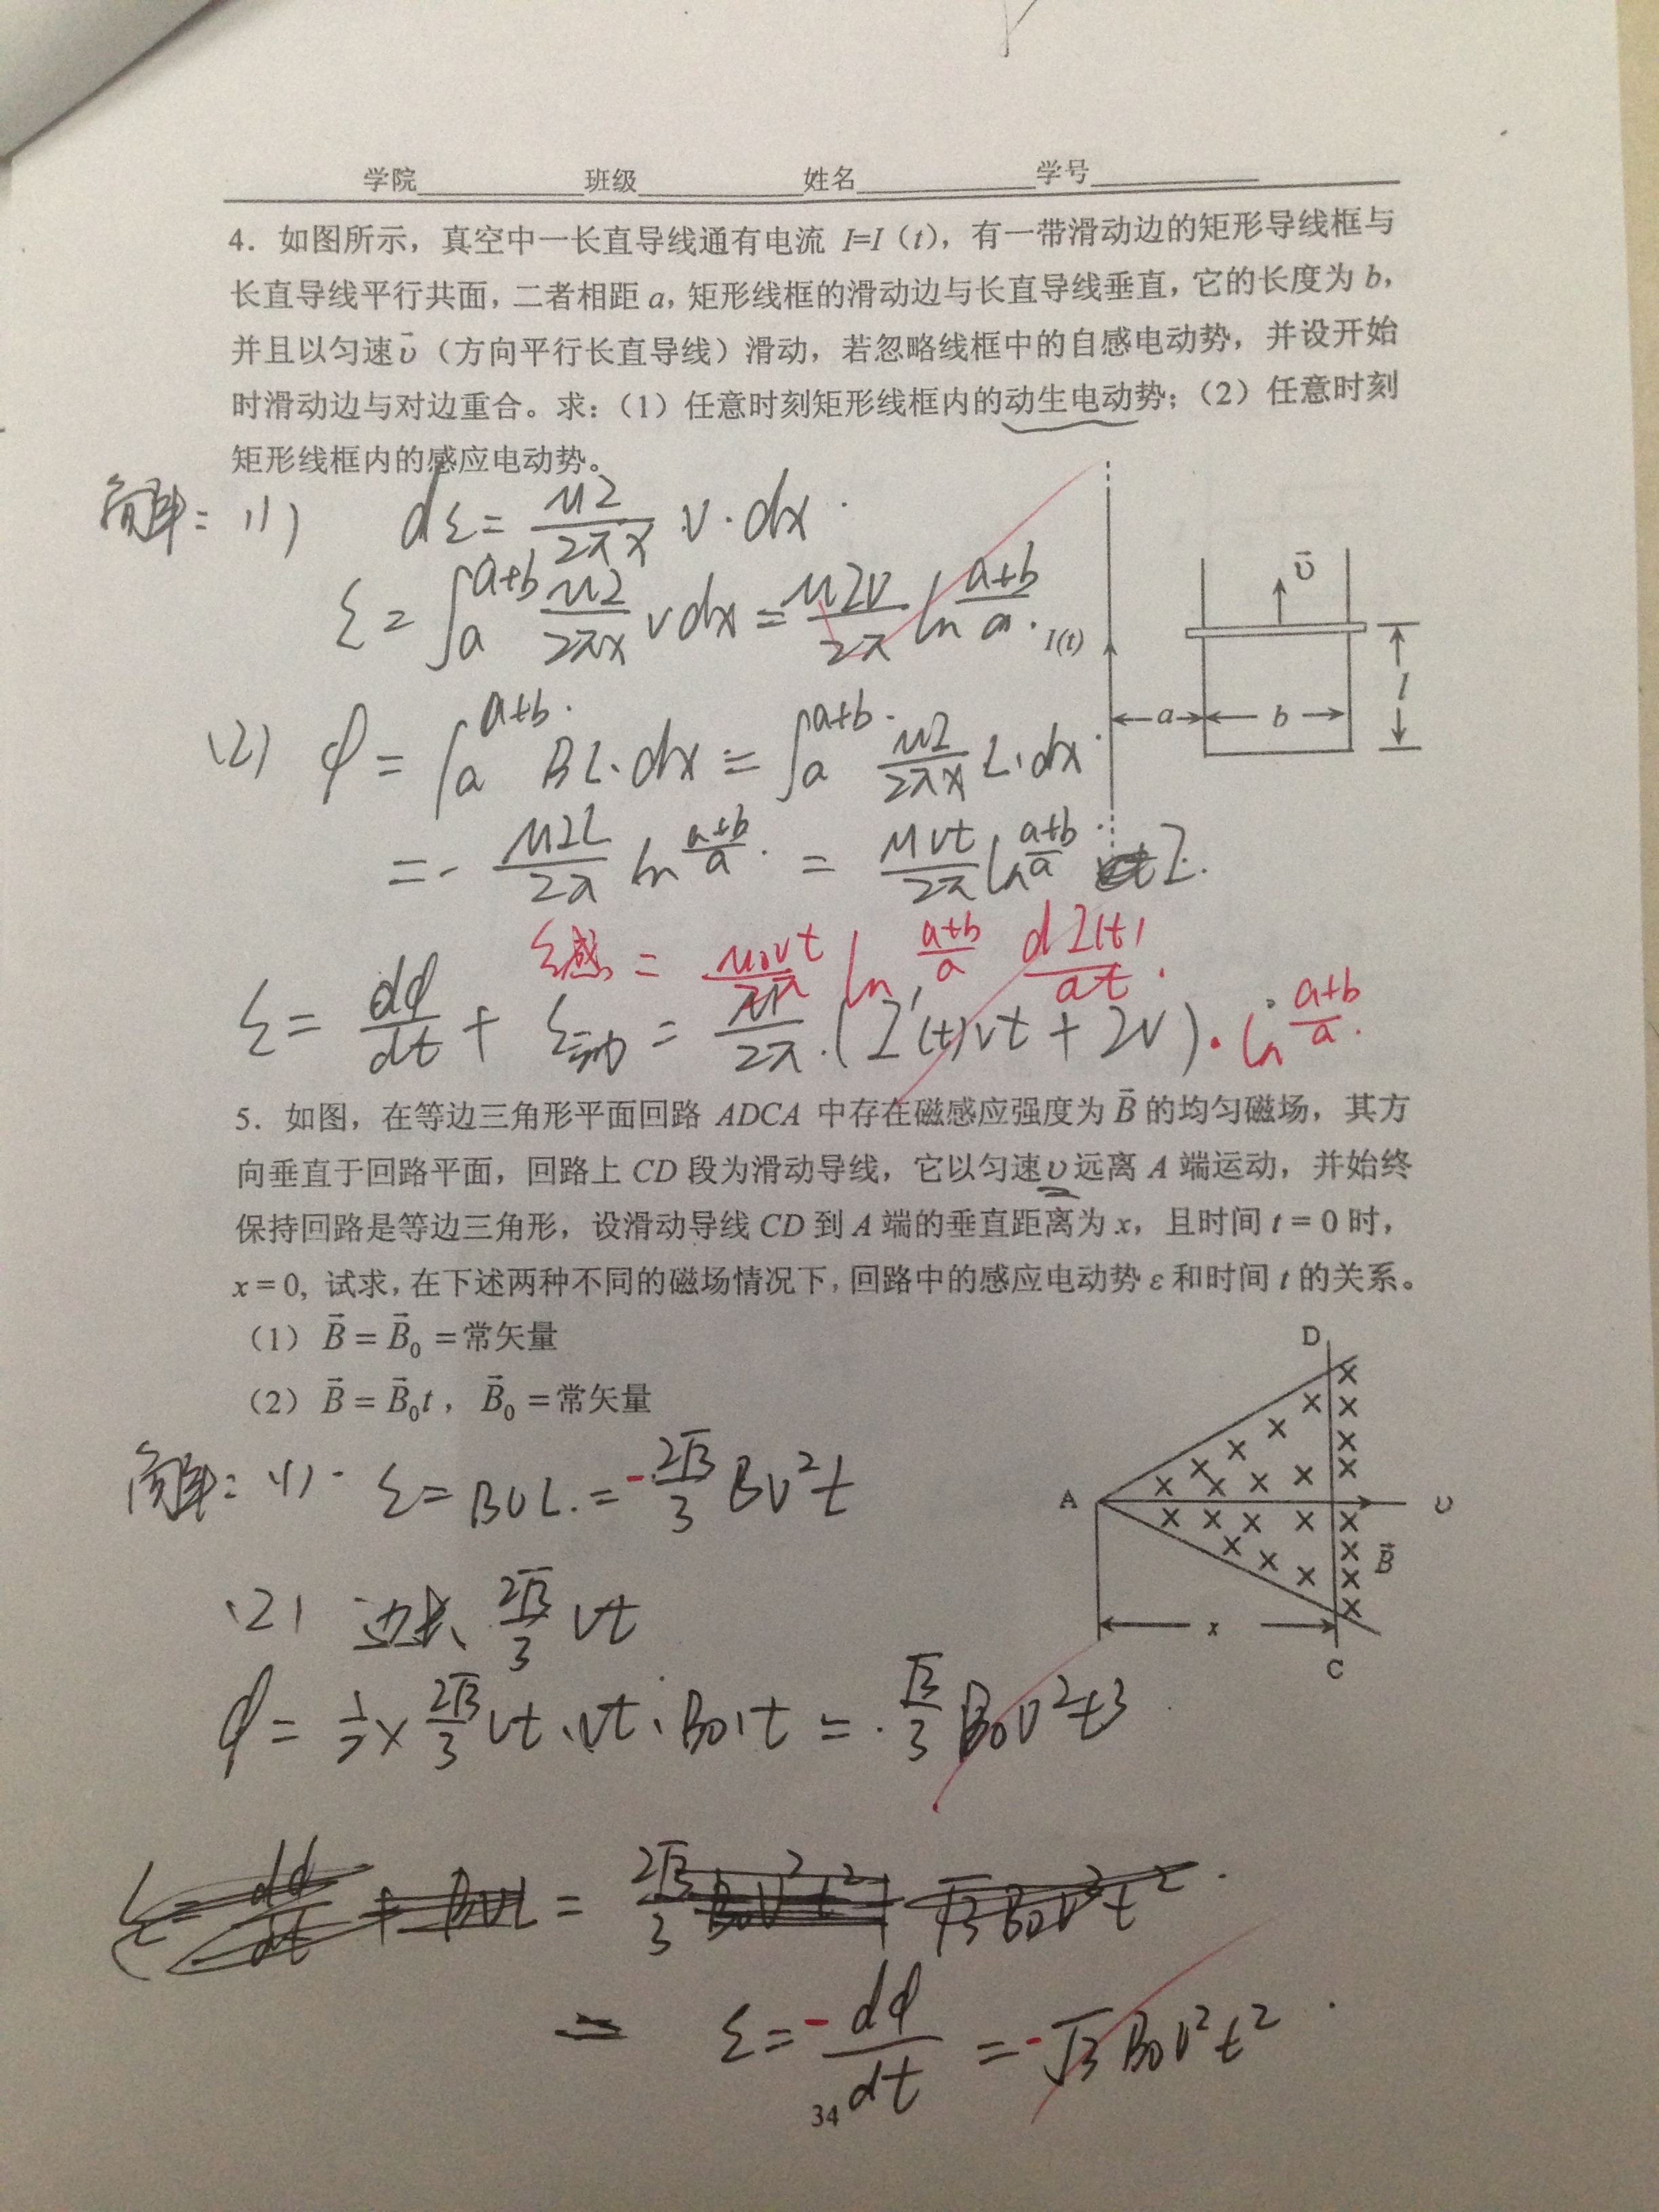 学院 班级 姓名 学号
4. 如图所示，真空中一长直导线通有电流 I=I（t），有一带滑动边的矩形导线框与
长直导线平行共面，二者相距 a，矩形线框的滑动边与长直导线垂直，它的长度为 b，
并且以匀速 v⃗（方向平行长直导线）滑动，若忽略线框中的自感电动势，并设开始
时滑动边与对边重合。求：（1）任意时刻矩形线框内的动生电动势；（2）任意时刻
矩形线框内的感应电动势。
解: (1) dε = μI/2πx v·dx
ε = ∫ₐ^(a+b) μI/2πx v dx = μIv/2π ln (a+b)/a
I(t)
v⃗
a b l
(2) φ = ∫ₐ^(a+b) BL·dx = ∫ₐ^(a+b) μI/2πx L·dx
= - μIL/2π ln (a+b)/a = μvt/2π ln (a+b)/a I.
ε感 = μ₀vt/2π ln (a+b)/a dI(t)/dt
ε = dφ/dt + ε动 = μ/2π (I'(t)vt + Iv)·ln (a+b)/a
5. 如图，在等边三角形平面回路 ADCA 中存在磁感应强度为 B⃗ 的均匀磁场，其方
向垂直于回路平面，回路上 CD 段为滑动导线，它以匀速 v 远离 A 端运动，并始终
保持回路是等边三角形，设滑动导线 CD 到 A 端的垂直距离为 x，且时间 t = 0 时，
x = 0, 试求，在下述两种不同的磁场情况下，回路中的感应电动势 ε 和时间 t 的关系。
（1）B⃗ = B⃗₀ =常矢量
（2）B⃗ = B⃗₀t，B⃗₀ =常矢量
D
A
v
B⃗
x
C
解: (1) ε = BvL = -2√3/3 Bv²t
(2) 边长 2√3/3 vt
φ = 1/2 × 2√3/3 vt·vt·B₀·t = √3/3 B₀v²t³
ε = dφ/dt + BvL = 2√3/3 B₀v²t² + √3B₀v²t²
= ε = -dφ/dt = -√3 B₀v²t²
34